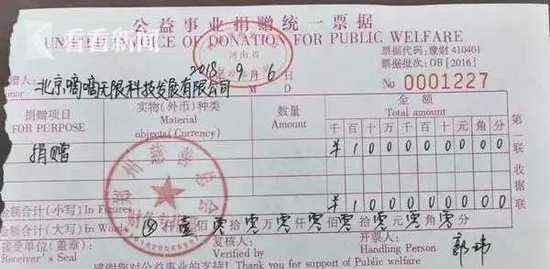 看看新闻
公益事业捐赠统一票据
UNIFIED INVOICE OF DONATION FOR PUBLIC WELFARE
河南省
票据代码:豫财 410401
票据批次:OB[2016]
北京嘀嘀无限科技发展有限公司
2018 年 9 月 6 日
Y M D
No 0001227
捐赠项目 实物(外币)种类 数量 金额
FOR PURPOSE Material objects(Currency) Amount Total amount
千 百 十 万 千 百 十 元 角 分
捐赠 ¥ 1 0 0 0 0 0 0 0 0
第一联 收据联
金额合计(小写)In Figures ¥ 1 0 0 0 0 0 0 0 0
金额合计(大写)In Words 仟 壹 佰 零 拾 零 万 零 仟 零 佰 零 拾 零 元 零 角 零 分
接受单位(盖章): 复核人: 开票人:
Receiver's Seal Verified by Handling Person 郭玮
感谢您对公益事业的支持! Thank you for support of Public Welfare!